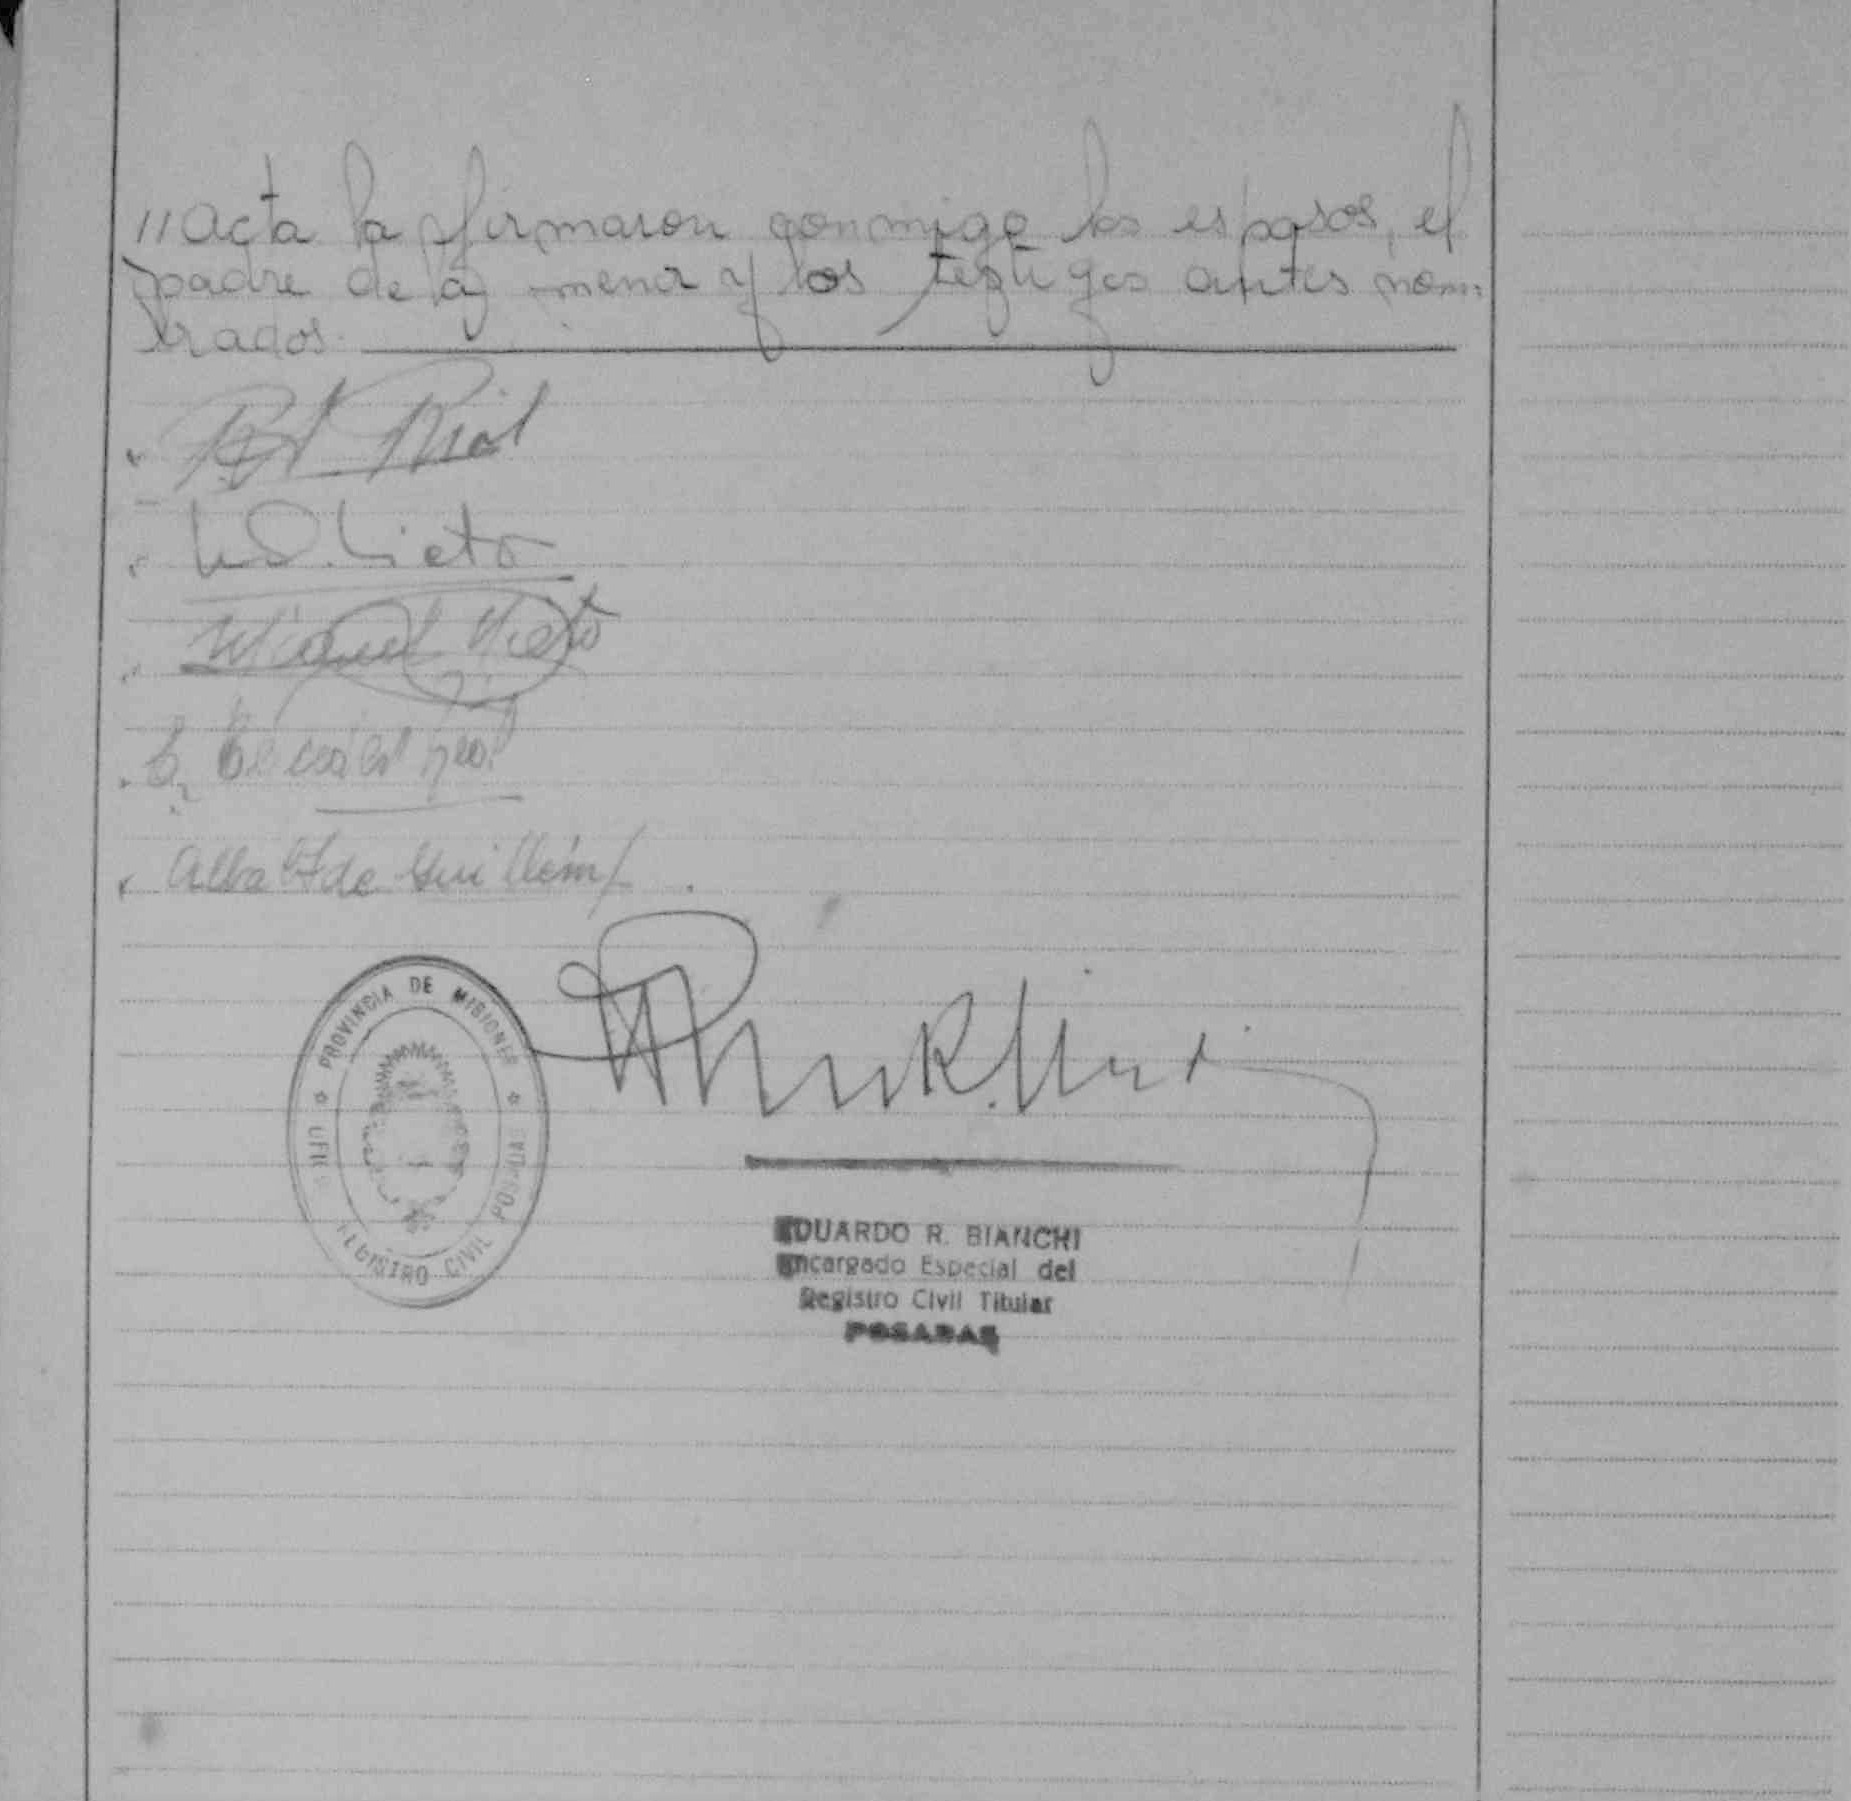 //acta la firmaron conmigo los esposos, el
padre de la menor y los testigos antes nom-
brados.
Rial
Nieto
Miguel Nieto
Alba de Guillém
PROVINCIA DE MISIONES
REGISTRO CIVIL POSADAS
EDUARDO R. BIANCHI
Encargado Especial del
Registro Civil Titular
POSADAS